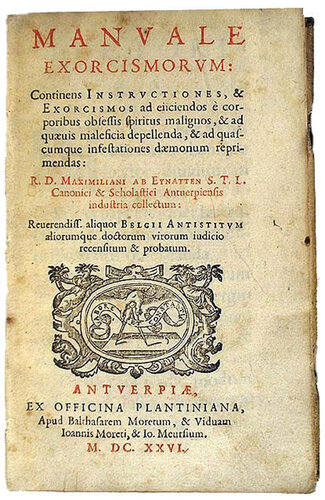 MANVALE
EXORCISMORVM:
Continens INSTRVCTIONES, &
EXORCISMOS ad eiiciendos è cor-
poribus obsessis spiritus malignos, & ad
quæuis maleficia depellenda, & ad quas-
cumque infestationes dæmonum repri-
mendas:
R. D. MAXIMILIANI AB EYNATTEN S. T. L.
Canonici & Scholastici Antuerpiensis
industria collectum:
Reuerendiss. aliquot BELGII ANTISTITVM
aliorumque doctorum virorum iudicio
recensitum & probatum.
ANTVERPIÆ,
EX OFFICINA PLANTINIANA,
Apud Balthasarem Moretum, & Viduam
Ioannis Moreti, & Io. Meursium.
M. DC. XXVI.